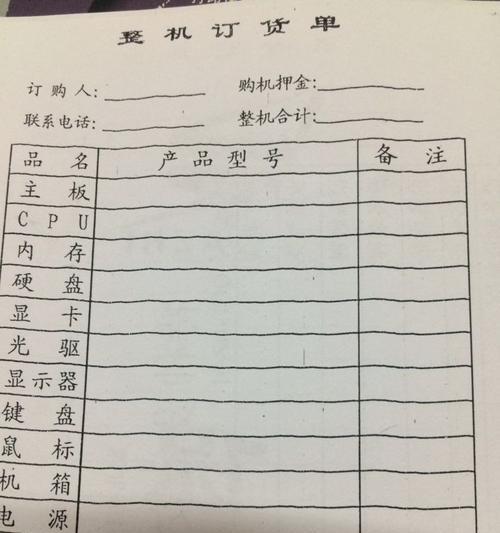 整机订货单
订购人: 购机押金:
联系电话: 整机合计:
品名 产品型号 备注
主板
CPU
内存
硬盘
显卡
光驱
显示器
键盘
鼠标
机箱
电源